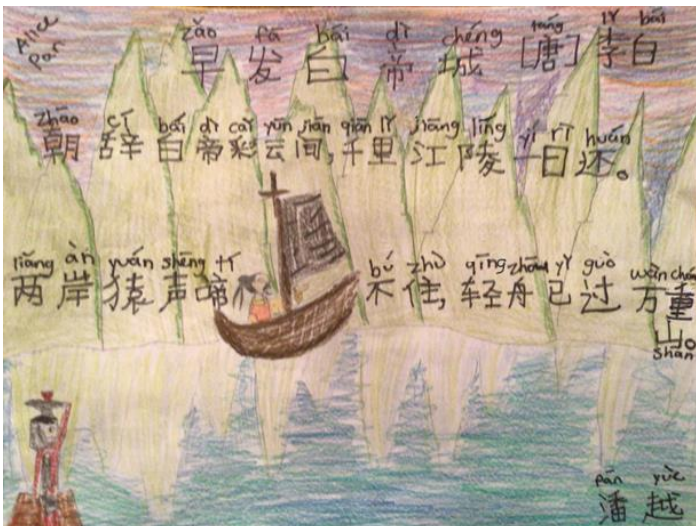 Alice
Pan
zǎo fā bái dì chéng táng lǐ bái
早 发 白 帝 城 [唐] 李白
zhāo cí bái dì cǎi yún jiān qiān lǐ jiāng líng yí rì huán
朝 辞 白 帝 彩 云 间, 千 里 江 陵 一 日 还。
liǎng àn yuán shēng tí bú zhù qīng zhōu yǐ guò wàn chóng
两 岸 猿 声 啼 不 住, 轻 舟 已 过 万 重
山。
shān
pān yuè
潘 越